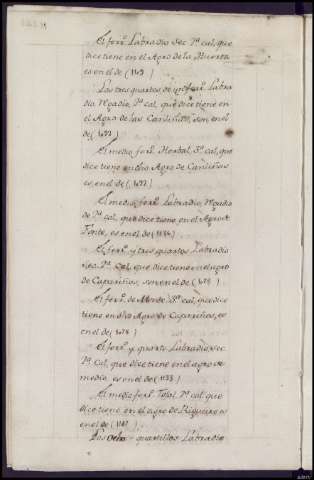 El ferr.º Labradio Sec.º 1ª cal, que
dice tiene en el Agro de la Huerta
es en el de (1169)
Las tres quartas de un ferr.º Labra
dio Rgadio, 1ª cal, que dice tiene en
el Agro de las Cariñas, son en el
de (1692)
El medio ferr.º Herbal, 3ª cal, que
dice tiene en dho Agro de Cariñas
es en el de (1692)
El medio ferr.º Labradio, Rgadio
de 2ª cal, que dice tiene en el Agro de
Fonte, es en el de (1684)
El ferr.º y tres quartos Labradio
sec.º 2ª cal, que dice tiene en el agro
de Capariños, son en el de (1678)
El ferr.º de Monte 3ª cal, que dice
tiene en dho Agro de Capariños, es
en el de (1678)
El ferr.º y quarto Labradio, sec.º
2ª cal, que dice tiene en el agro de
medio es en el de (1133)
El medio ferr.º Tojal 2ª cal, que
dice tiene en el agro de Rigueiro es
en el de (1187)
Los Ocho quartillos Labradio